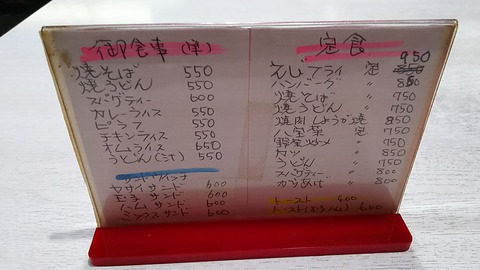 御食事(単)
焼そば 550
焼うどん 550
スパゲティー 600
カレーライス 550
ピラフ 550
チキンライス 550
オムライス 650
うどん(汁) 550
サンドウイッチ
ヤサイサンド 600
玉子サンド 600
ハムサンド 600
ミックスサンド 600
定食
エビフライ 定 950
ハンバーグ 〃 850
焼そば 〃 750
焼うどん 〃 750
焼肉しょうが焼 850
八宝菜 定 750
野菜炒め 〃 750
カツ 〃 850
うどん 〃 750
スパゲティー 〃 800
からあげ 〃 800
トースト 400
トースト 600